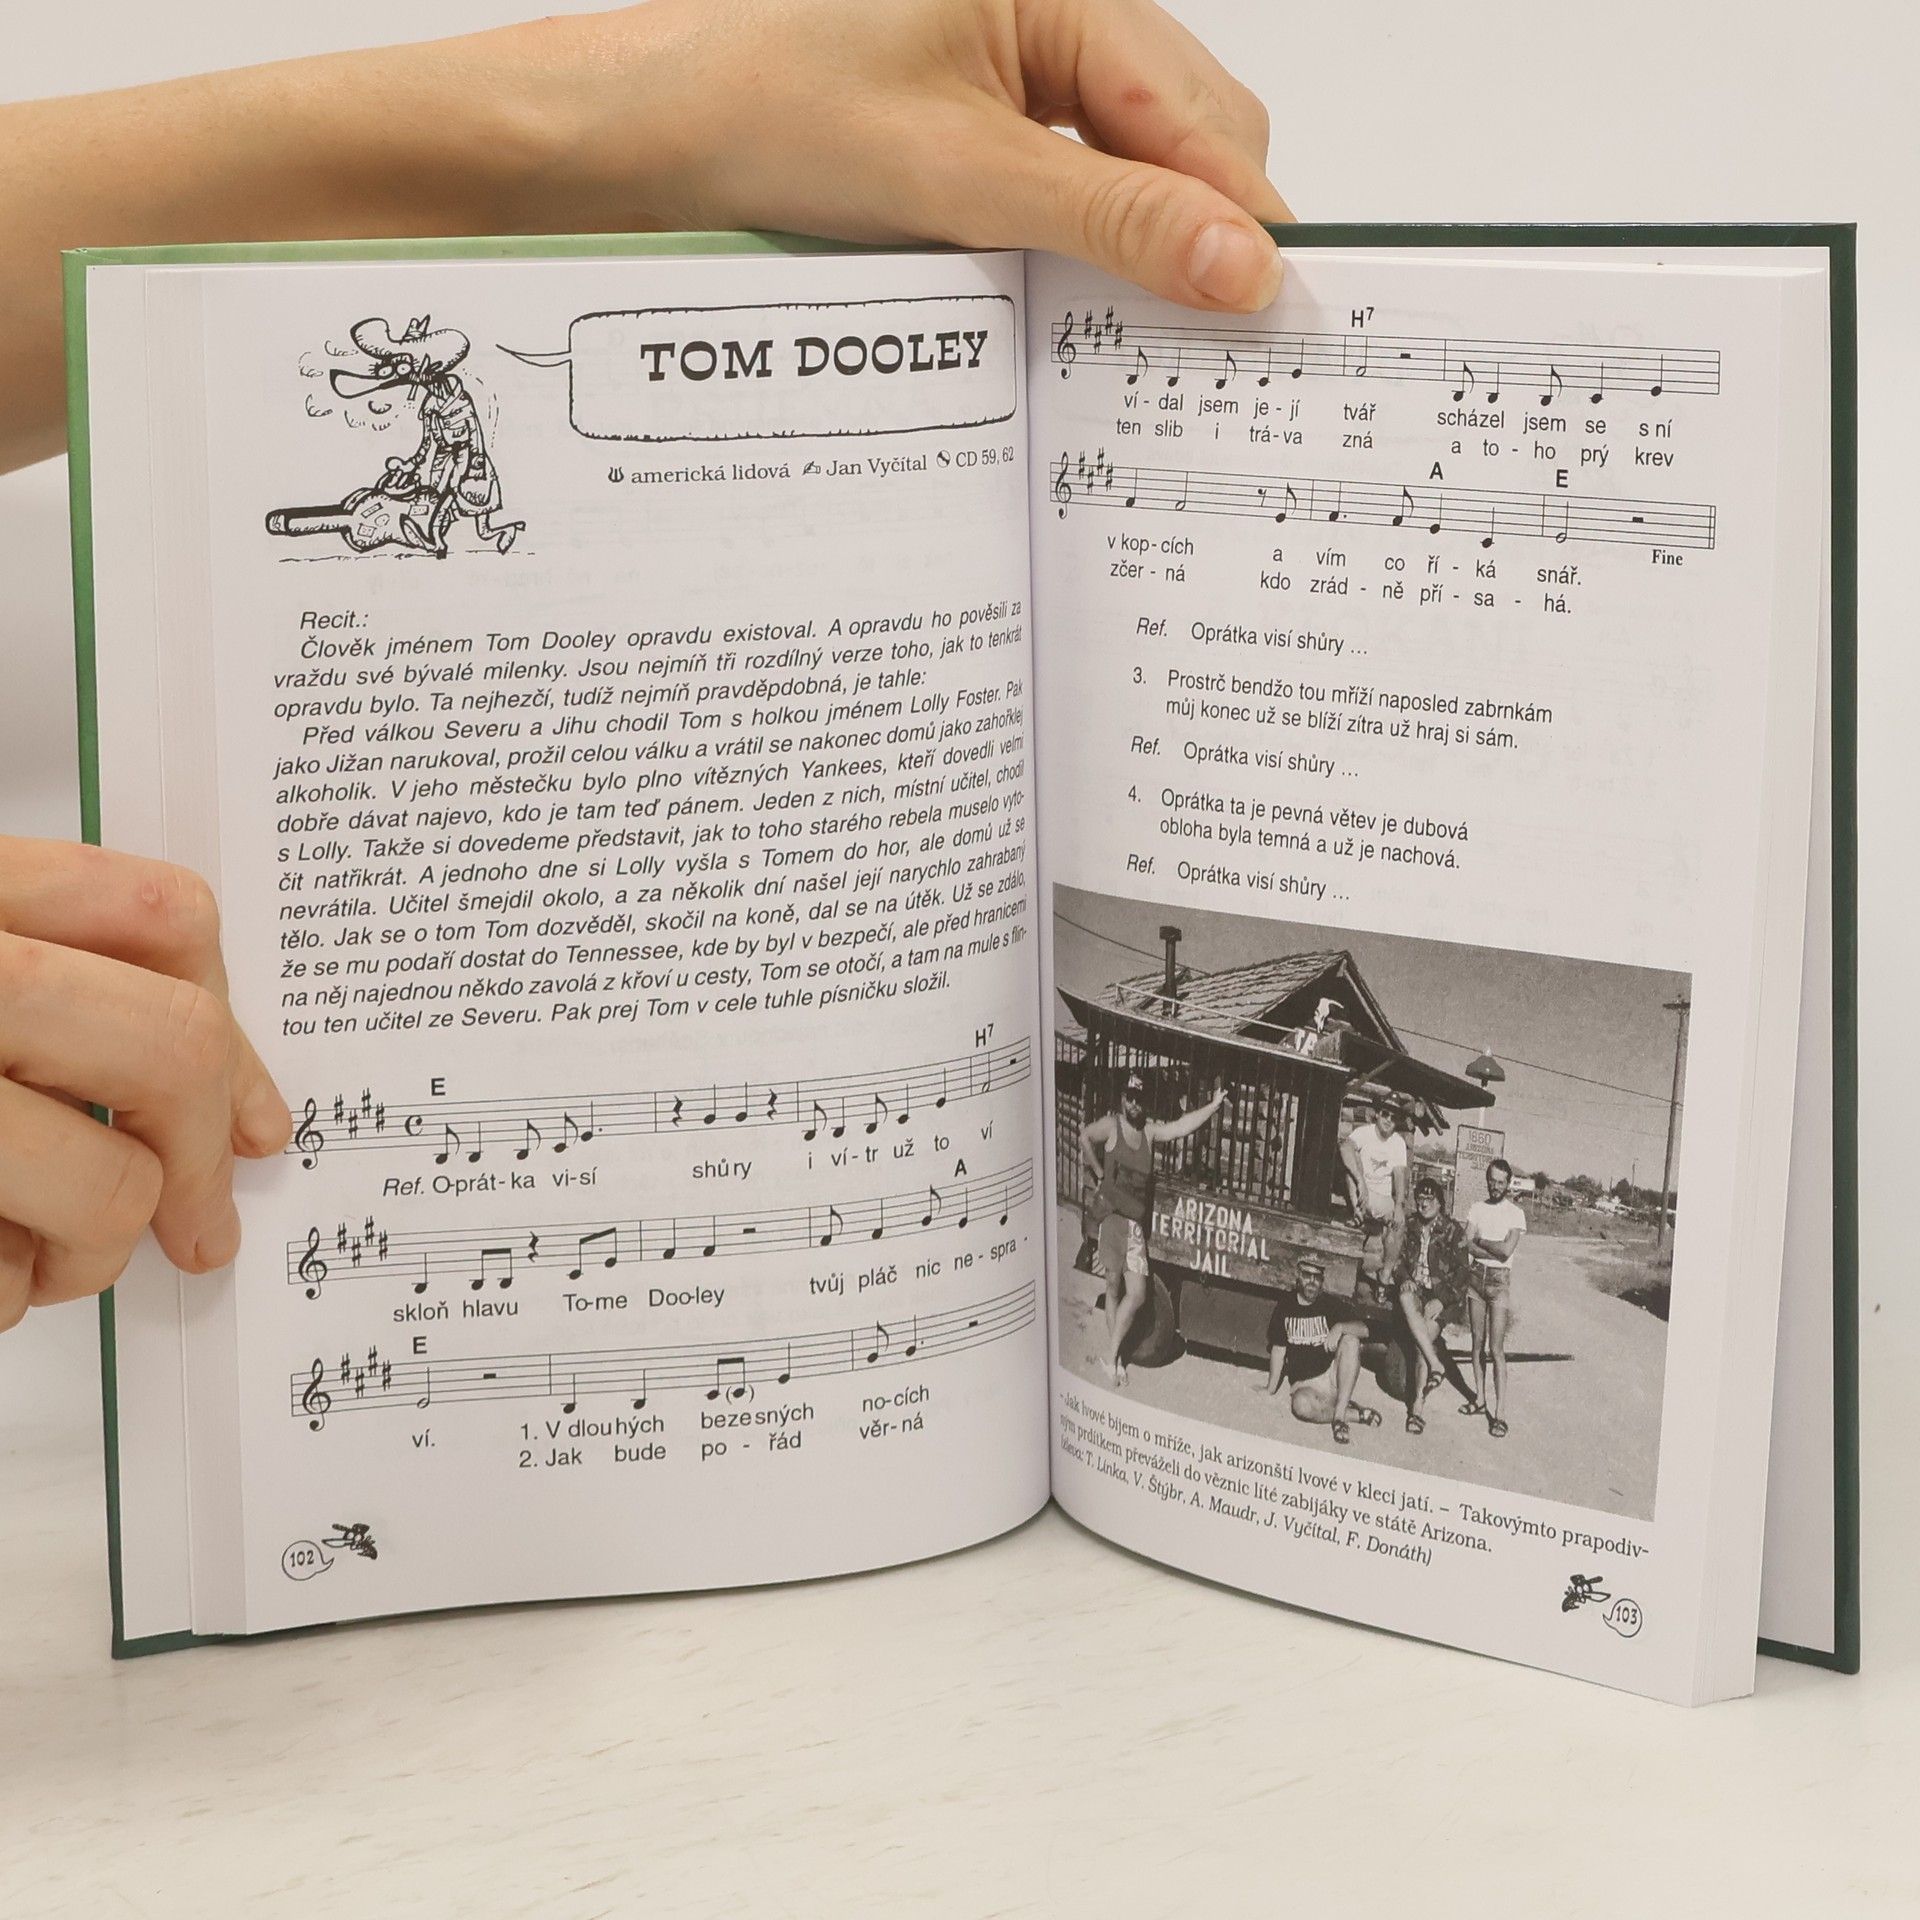 TOM DOOLEY
americká lidová Jan Vyčítal CD 59, 62
Recit.:
Člověk jménem Tom Dooley opravdu existoval. A opravdu ho pověsili za
vraždu své bývalé milenky. Jsou nejmíň tři rozdílný verze toho, jak to tenkrát
opravdu bylo. Ta nejhezčí, tudíž nejmíň pravděpdobná, je tahle:
Před válkou Severu a Jihu chodil Tom s holkou jménem Lolly Foster. Pak
jako Jižan narukoval, prožil celou válku a vrátil se nakonec domů jako zahořklej
alkoholik. V jeho městečku bylo plno vítězných Yankees, kteří dovedli velmi
dobře dávat najevo, kdo je tam teď pánem. Jeden z nich, místní učitel, chodil
s Lolly. Takže si dovedeme představit, jak to toho starého rebela muselo vyto-
čit natřikrát. A jednoho dne si Lolly vyšla s Tomem do hor, ale domů už se
nevrátila. Učitel šmejdil okolo, a za několik dní našel její narychlo zahrabaný
tělo. Jak se o tom Tom dozvěděl, skočil na koně, dal se na útěk. Už se zdálo,
že se mu podaří dostat do Tennessee, kde by byl v bezpečí, ale před hranicemi
na něj najednou někdo zavolá z křoví u cesty, Tom se otočí, a tam na mule s flin-
tou ten učitel ze Severu. Pak prej Tom v cele tuhle písničku složil.
E H7
Ref. O-prát-ka vi-sí shůry i ví-tr už to ví
A
skloň hlavu To-me Doo-ley tvůj pláč nic ne-spra-
E
ví. 1. V dlouhých bezesných no-cích
2. Jak bude po - řád věr-ná
102
H7
ví-dal jsem je-jí tvář scházel jsem se s ní
ten slib i trá-va zná a to-ho prý krev
A E
v kop-cích a vím co ří - ká snář.
Fine
zčer - ná kdo zrád - ně pří - sa - há.
Ref. Oprátka visí shůry ...
3. Prostrč bendžo tou mříží naposled zabrnkám
můj konec už se blíží zítra už hraj si sám.
Ref. Oprátka visí shůry ...
4. Oprátka ta je pevná větev je dubová
obloha byla temná a už je nachová.
Ref. Oprátka visí shůry ...
1860
ARIZONA
TERRITORIAL
JAIL
ARIZONA
TERRITORIAL
JAIL
CALIFORNIA
– Jak lvové bijem o mříže, jak arizonští lvové v kleci jatí. – Takovýmto prapodiv-
ným prdítkem převáželi do věznic líté zabijáky ve státě Arizona.
(zleva: T. Linka, V. Štýbr, A. Maudr, J. Vyčítal, F. Donáth)
103